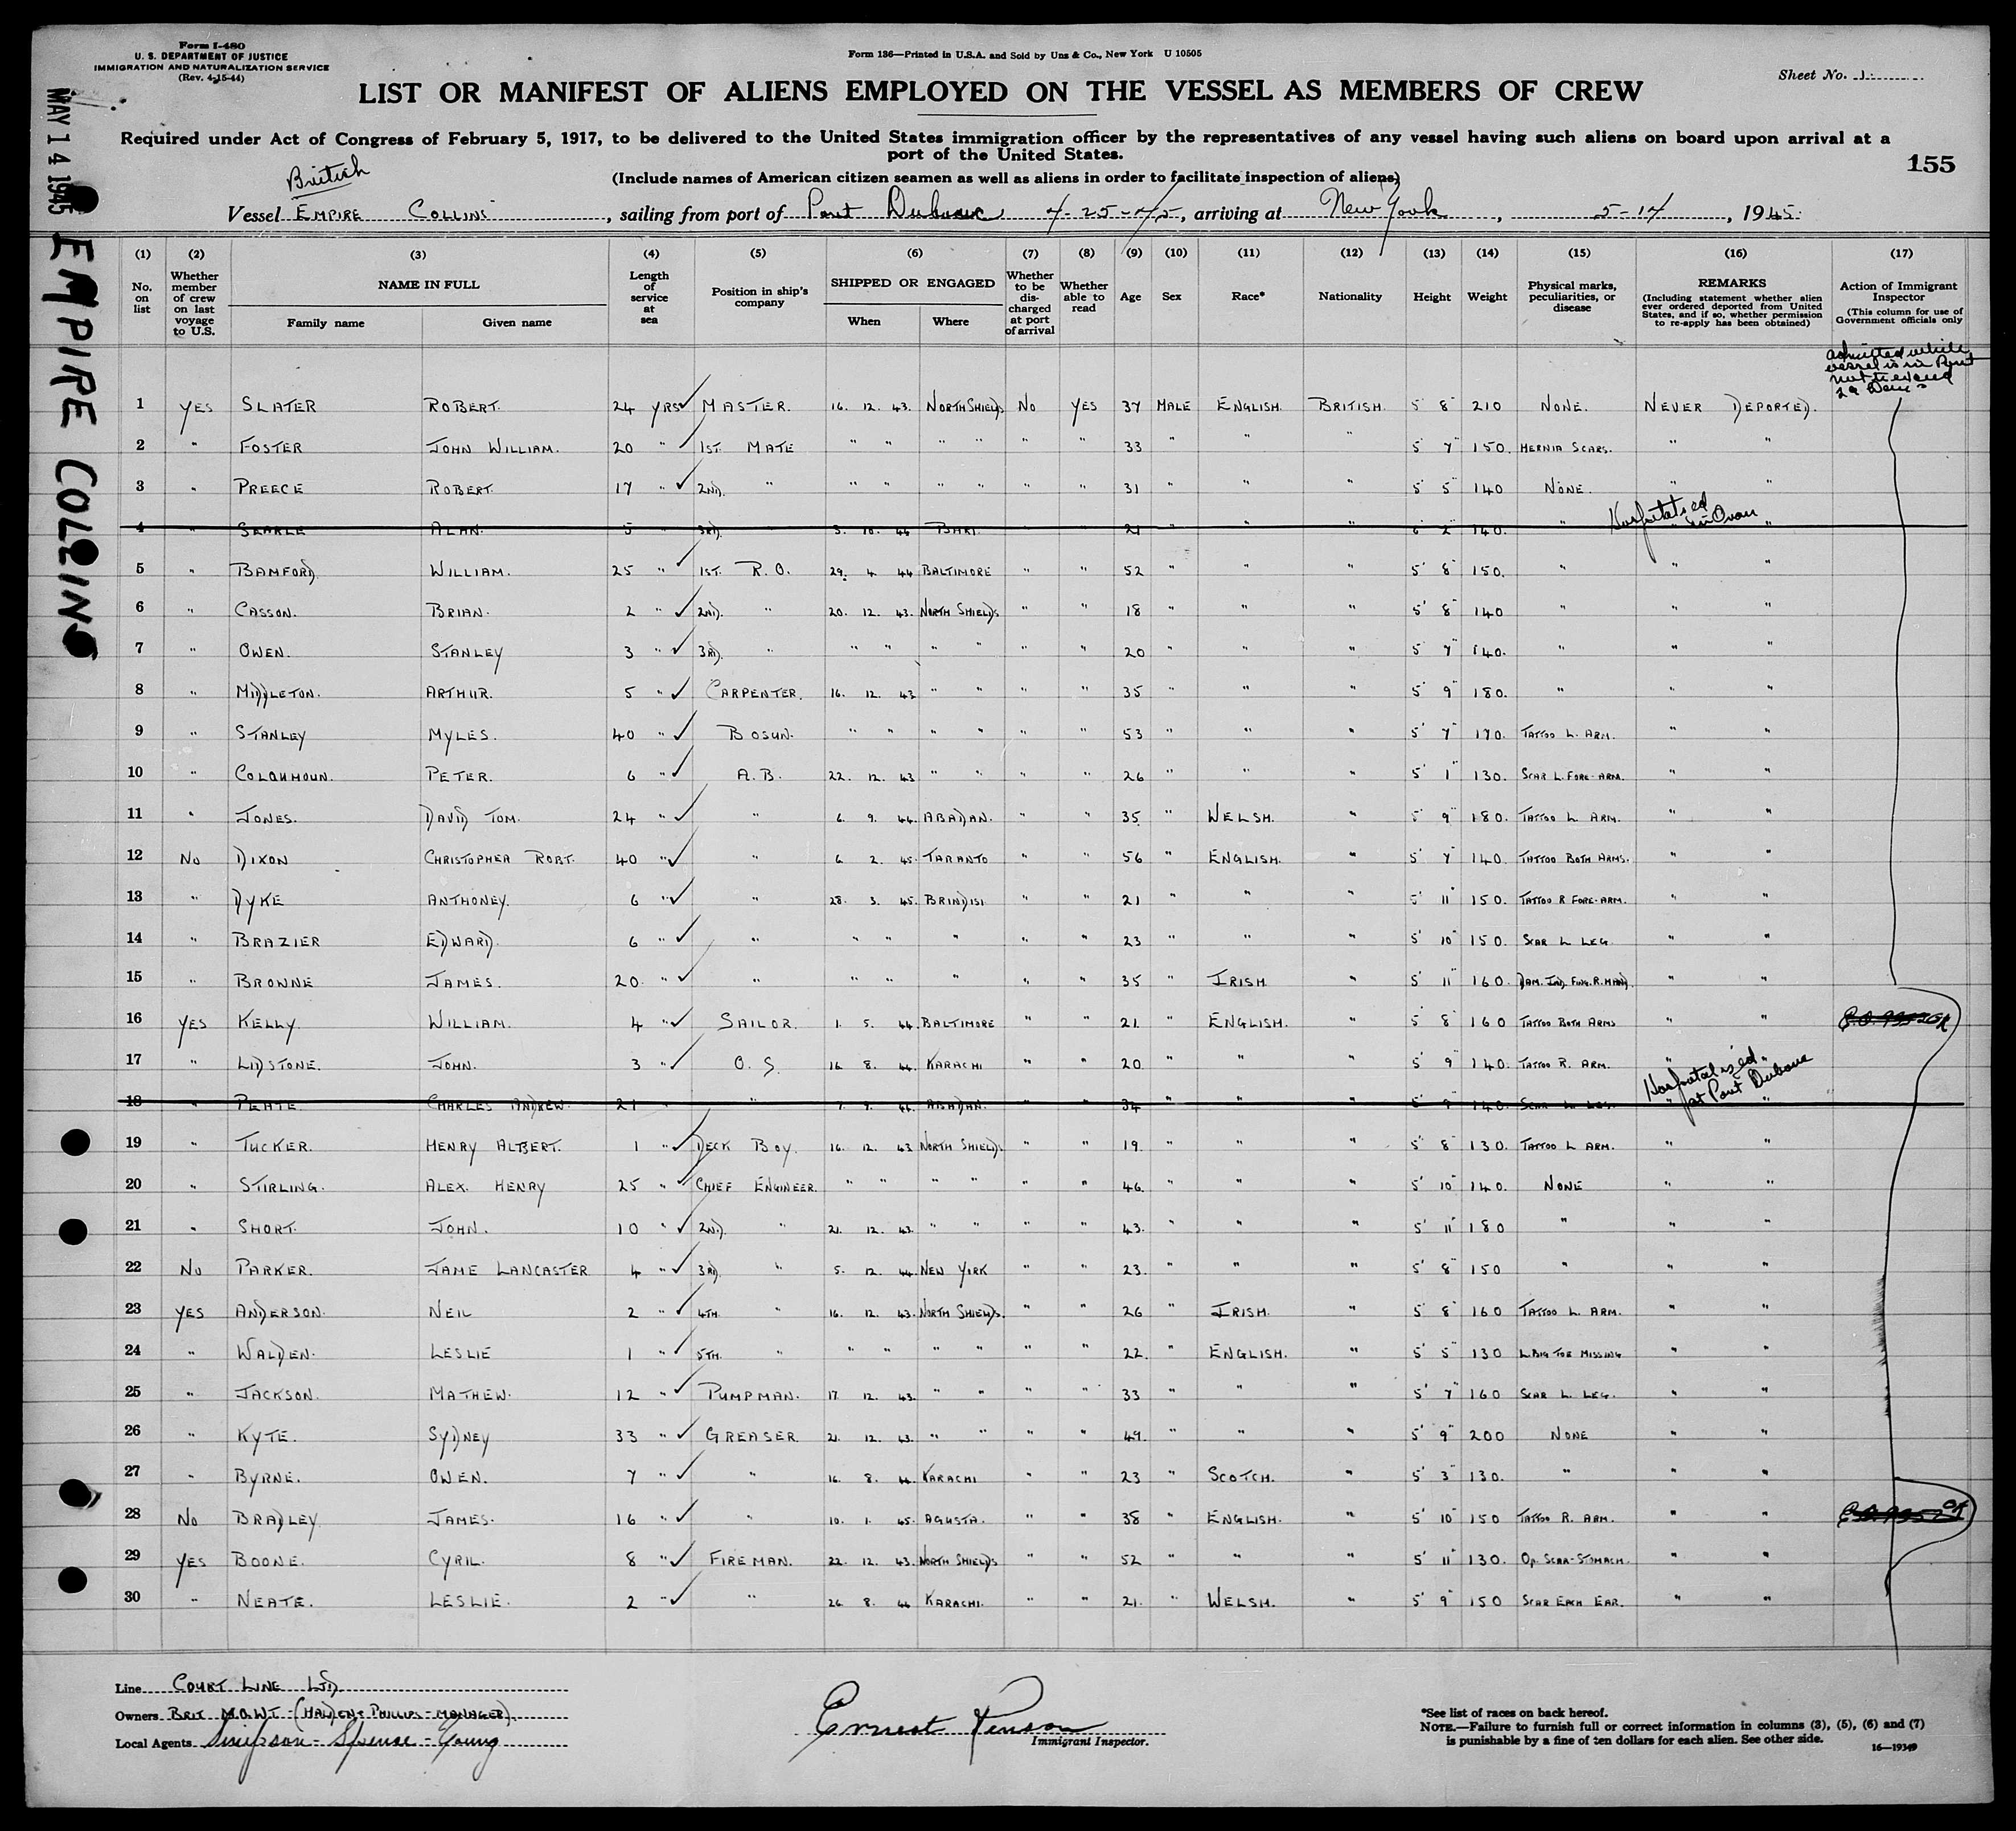 Form I-480
U. S. DEPARTMENT OF JUSTICE
IMMIGRATION AND NATURALIZATION SERVICE
(Rev. 4-15-44)
Form 136—Printed in U.S.A. and Sold by Unz & Co., New York U 10505
Sheet No. 1
LIST OR MANIFEST OF ALIENS EMPLOYED ON THE VESSEL AS MEMBERS OF CREW
Required under Act of Congress of February 5, 1917, to be delivered to the United States immigration officer by the representatives of any vessel having such aliens on board upon arrival at a
port of the United States.
155
(Include names of American citizen seamen as well as aliens in order to facilitate inspection of aliens)
MAY 14 1945
EMPIRE COLLINS
British
Vessel EMPIRE COLLINS, sailing from port of Port Dubouc 4-25-45, arriving at New York, 5-14, 1945
(1) (2) (3) (4) (5) (6) (7) (8) (9) (10) (11) (12) (13) (14) (15) (16) (17)
No. on list
Whether member of crew on last voyage to U.S.
NAME IN FULL
Family name
Given name
Length of service at sea
Position in ship's company
SHIPPED OR ENGAGED
When
Where
Whether to be discharged at port of arrival
Whether able to read
Age
Sex
Race*
Nationality
Height
Weight
Physical marks, peculiarities, or disease
REMARKS
(Including statement whether alien ever ordered deported from United States, and if so, whether permission to re-apply has been obtained)
Action of Immigrant Inspector
(This column for use of Government officials only
admitted while
vessel is in Port
not to exceed
29 Days
1 YES SLATER ROBERT. 24 YRS MASTER. 16. 12. 43. NORTH SHIELDS NO YES 37 MALE ENGLISH. BRITISH. 5' 8" 210 NONE. NEVER DEPORTED.
2 " FOSTER JOHN WILLIAM. 20 " 1ST. MATE " " " " " 33 " " " 5' 7" 150. HERNIA SCARS. " "
3 " PREECE ROBERT. 17 " 2ND. " " " " " " " 31 " " " 5' 5" 140 NONE. " "
Hospitalised in Oran
4 " SEARLE ALAN. 5 " 3RD. 3. 10. 44 BARI. " " 21 " " " 6' 2" 140. " " "
5 " BAMFORD WILLIAM. 25 " 1ST. R.O. 29. 4. 44 BALTIMORE " " 52 " " " 5' 8" 150. " " "
6 " CASSON. BRIAN. 2 " 2ND. " 20. 12. 43. NORTH SHIELDS " " 18 " " " 5' 8" 140 " " "
7 " OWEN. STANLEY 3 " 3RD. " " " " " " " 20 " " " 5' 7" 140. " " "
8 " MIDDLETON. ARTHUR. 5 " CARPENTER. 16. 12. 43 " " " " 35 " " " 5' 9" 180. " " "
9 " STANLEY MYLES. 40 " BOSUN. " " " " " " 53 " " " 5' 7" 170. TATTOO L. ARM. " "
10 " COLQUHOUN. PETER. 6 " A.B. 22. 12. 43 " " " " 26 " " " 5' 1" 130. SCAR L. FORE-ARM. " "
11 " JONES. DAVID TOM. 24 " " 6. 9. 44. ABADAN. " " 35. " WELSH. " 5' 9" 180. TATTOO L. ARM. " "
12 NO DIXON CHRISTOPHER ROBT. 40 " " 6. 2. 45. TARANTO " " 56 " ENGLISH. " 5' 7" 140. TATTOO BOTH ARMS. " "
13 " DYKE ANTHONEY. 6 " " 28. 3. 45. BRINDISI " " 21 " " " 5' 11" 150. TATTOO R FORE-ARM. " "
14 " BRAZIER EDWARD. 6 " " " " " " " 23 " " " 5' 10" 150. SCAR L LEG. " "
15 " BROWNE JAMES. 20. " " " " " " " 35 " IRISH " 5' 11" 160. DAM. IND. FING. R. HAND. " "
16 YES KELLY. WILLIAM. 4 " SAILOR. 1. 5. 44. BALTIMORE " " 21. " ENGLISH. " 5' 8" 160 TATTOO BOTH ARMS " "
17 " LIDSTONE. JOHN. 3 " O. S. 16. 8. 44. KARACHI " " 20. " " " 5' 9" 140. TATTOO R. ARM. " "
Hospitalised at Port Dubouc
18 " PLATE CHARLES ANDREW. 21 " " 7. 9. 44. ABADAN. " " 34 " " " 5' 9" 140. SCAR L. LEG. " "
19 " TUCKER. HENRY ALBERT. 1 " DECK BOY. 16. 12. 43 NORTH SHIELDS " " 19. " " " 5' 8" 130. TATTOO L ARM. " "
20 " STIRLING. ALEX. HENRY 25 " CHIEF ENGINEER. " " " " " " 46. " " " 5' 10" 140. NONE " "
21 " SHORT. JOHN. 10 " 2ND. " 21. 12. 43. " " " " 43. " " " 5' 11" 180 " " "
22 NO PARKER. JAME LANCASTER 4 " 3RD. " 5. 12. 44. NEW YORK " " 23. " " " 5' 8" 150 " " "
23 YES ANDERSON. NEIL 2 " 4TH. " 16. 12. 43. NORTH SHIELDS. " " 26 " IRISH. " 5' 8" 160 TATTOO L. ARM. " "
24 " WALDEN. LESLIE 1 " 5TH. " " " " " " " 22. " ENGLISH. " 5' 5" 130 L. BIG TOE MISSING " "
25 " JACKSON. MATHEW. 12 " PUMPMAN. 17. 12. 43. " " " " 33 " " " 5' 7" 160 SCAR L. LEG. " "
26 " KYTE. SYDNEY 33 " GREASER 21. 12. 43. " " " " 49. " " " 5' 9" 200 NONE " "
27 " BYRNE. OWEN. 7 " " 16. 8. 44. KARACHI " " 23 " SCOTCH. " 5' 3" 130. " " "
28 NO BRADLEY. JAMES. 16 " " 10. 1. 45. AGUSTA. " " 38 " ENGLISH. " 5' 10" 150 TATTOO R. ARM. " "
29 YES BOONE. CYRIL. 8 " FIREMAN. 22. 12. 43. NORTH SHIELDS " " 52 " " " 5' 11" 130. OP. SCAR-STOMACH. " "
30 " NEATE. LESLIE. 2 " " 26. 8. 44 KARACHI. " " 21. " WELSH. " 5' 9" 150 SCAR EACH EAR. " "
Line COURT LINE LTD.
Owners BRIT M.O.W.T. (HALDEN & PHILLIPS - MANAGER).
Local Agents Simpson - Spense - Young
Ernest
Immigrant Inspector.
*See list of races on back hereof.
NOTE.—Failure to furnish full or correct information in columns (3), (5), (6) and (7)
is punishable by a fine of ten dollars for each alien. See other side.
16—19349